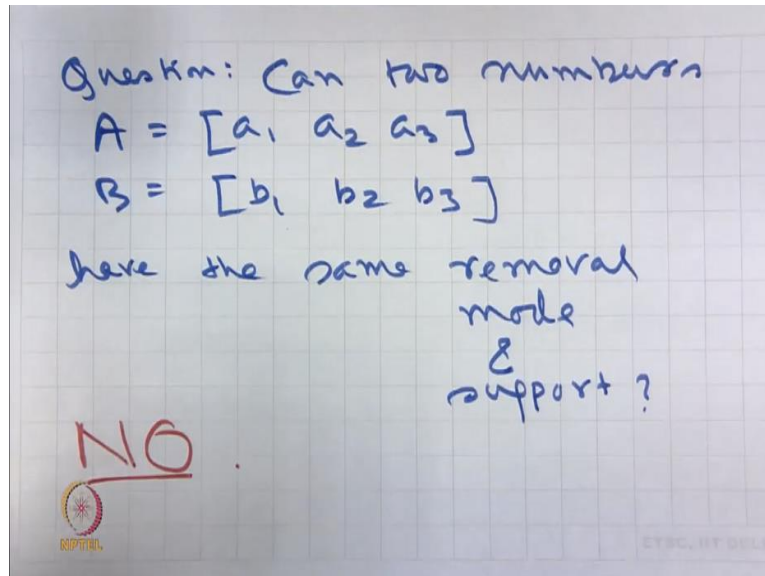 Question: Can two numbers
A = [a₁ a₂ a₃]
B = [b₁ b₂ b₃]
have the same removal
mode
&
support?
NO.
NPTEL
ETSC, IIT DELHI